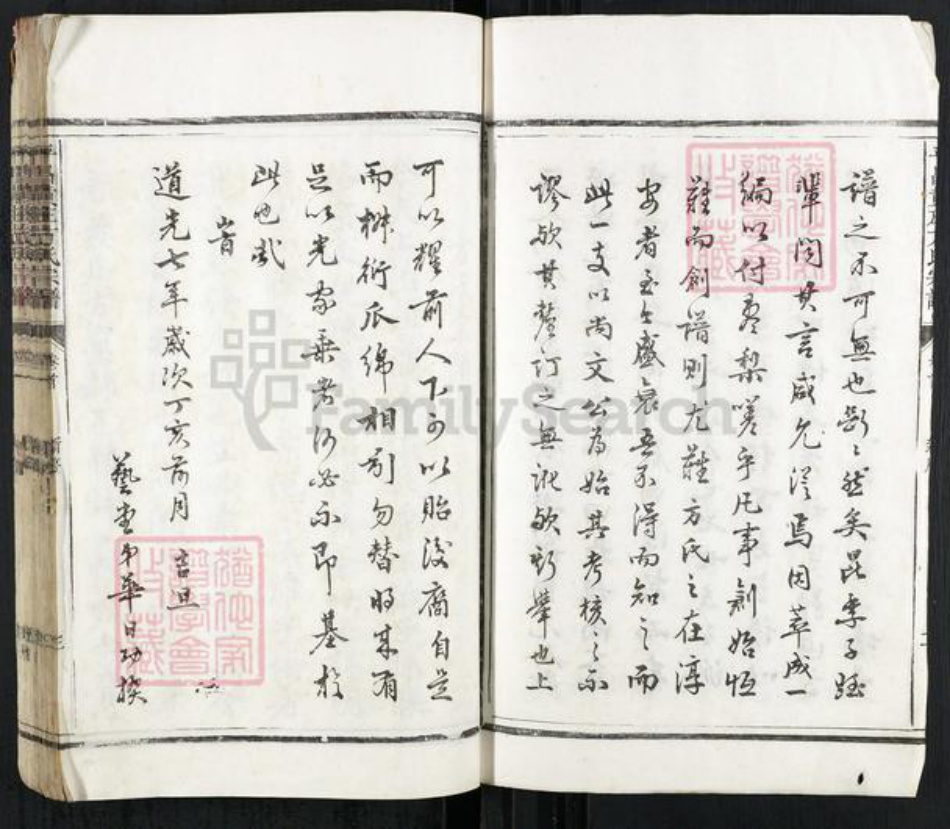 譜之不可無也斷斷然矣昆季子姪
輩聞其言咸允從焉因萃成一
編以付棗梨嗟乎凡事創始恆
難而創譜則尤難方氏之在淳
安者至今盛衰吾不得而知之而
此一支以尚文公為始其考核之不
謬歟其釐訂之無訛歟彩舉也上
可以耀前人下可以貽後裔自是
而椒衍瓜綿相引勿替時來有
足以光家乘者何必不即基於
此也哉
峕
道光七年歲次丁亥前月 吉旦
藝
弟華日功撰
FamilySearch